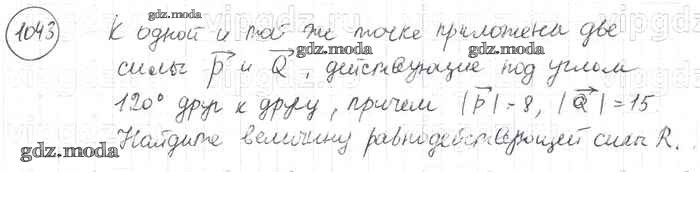 1043 К одной и той же точке приложены две
gdz.moda gdz.moda
силы P и Q, действующие под углом
120° друг к другу, причем |P| = 8, |Q| = 15.
gdz.moda gdz.moda
Найдите величину равнодействующей силы R.
gdz.moda
gdz.moda